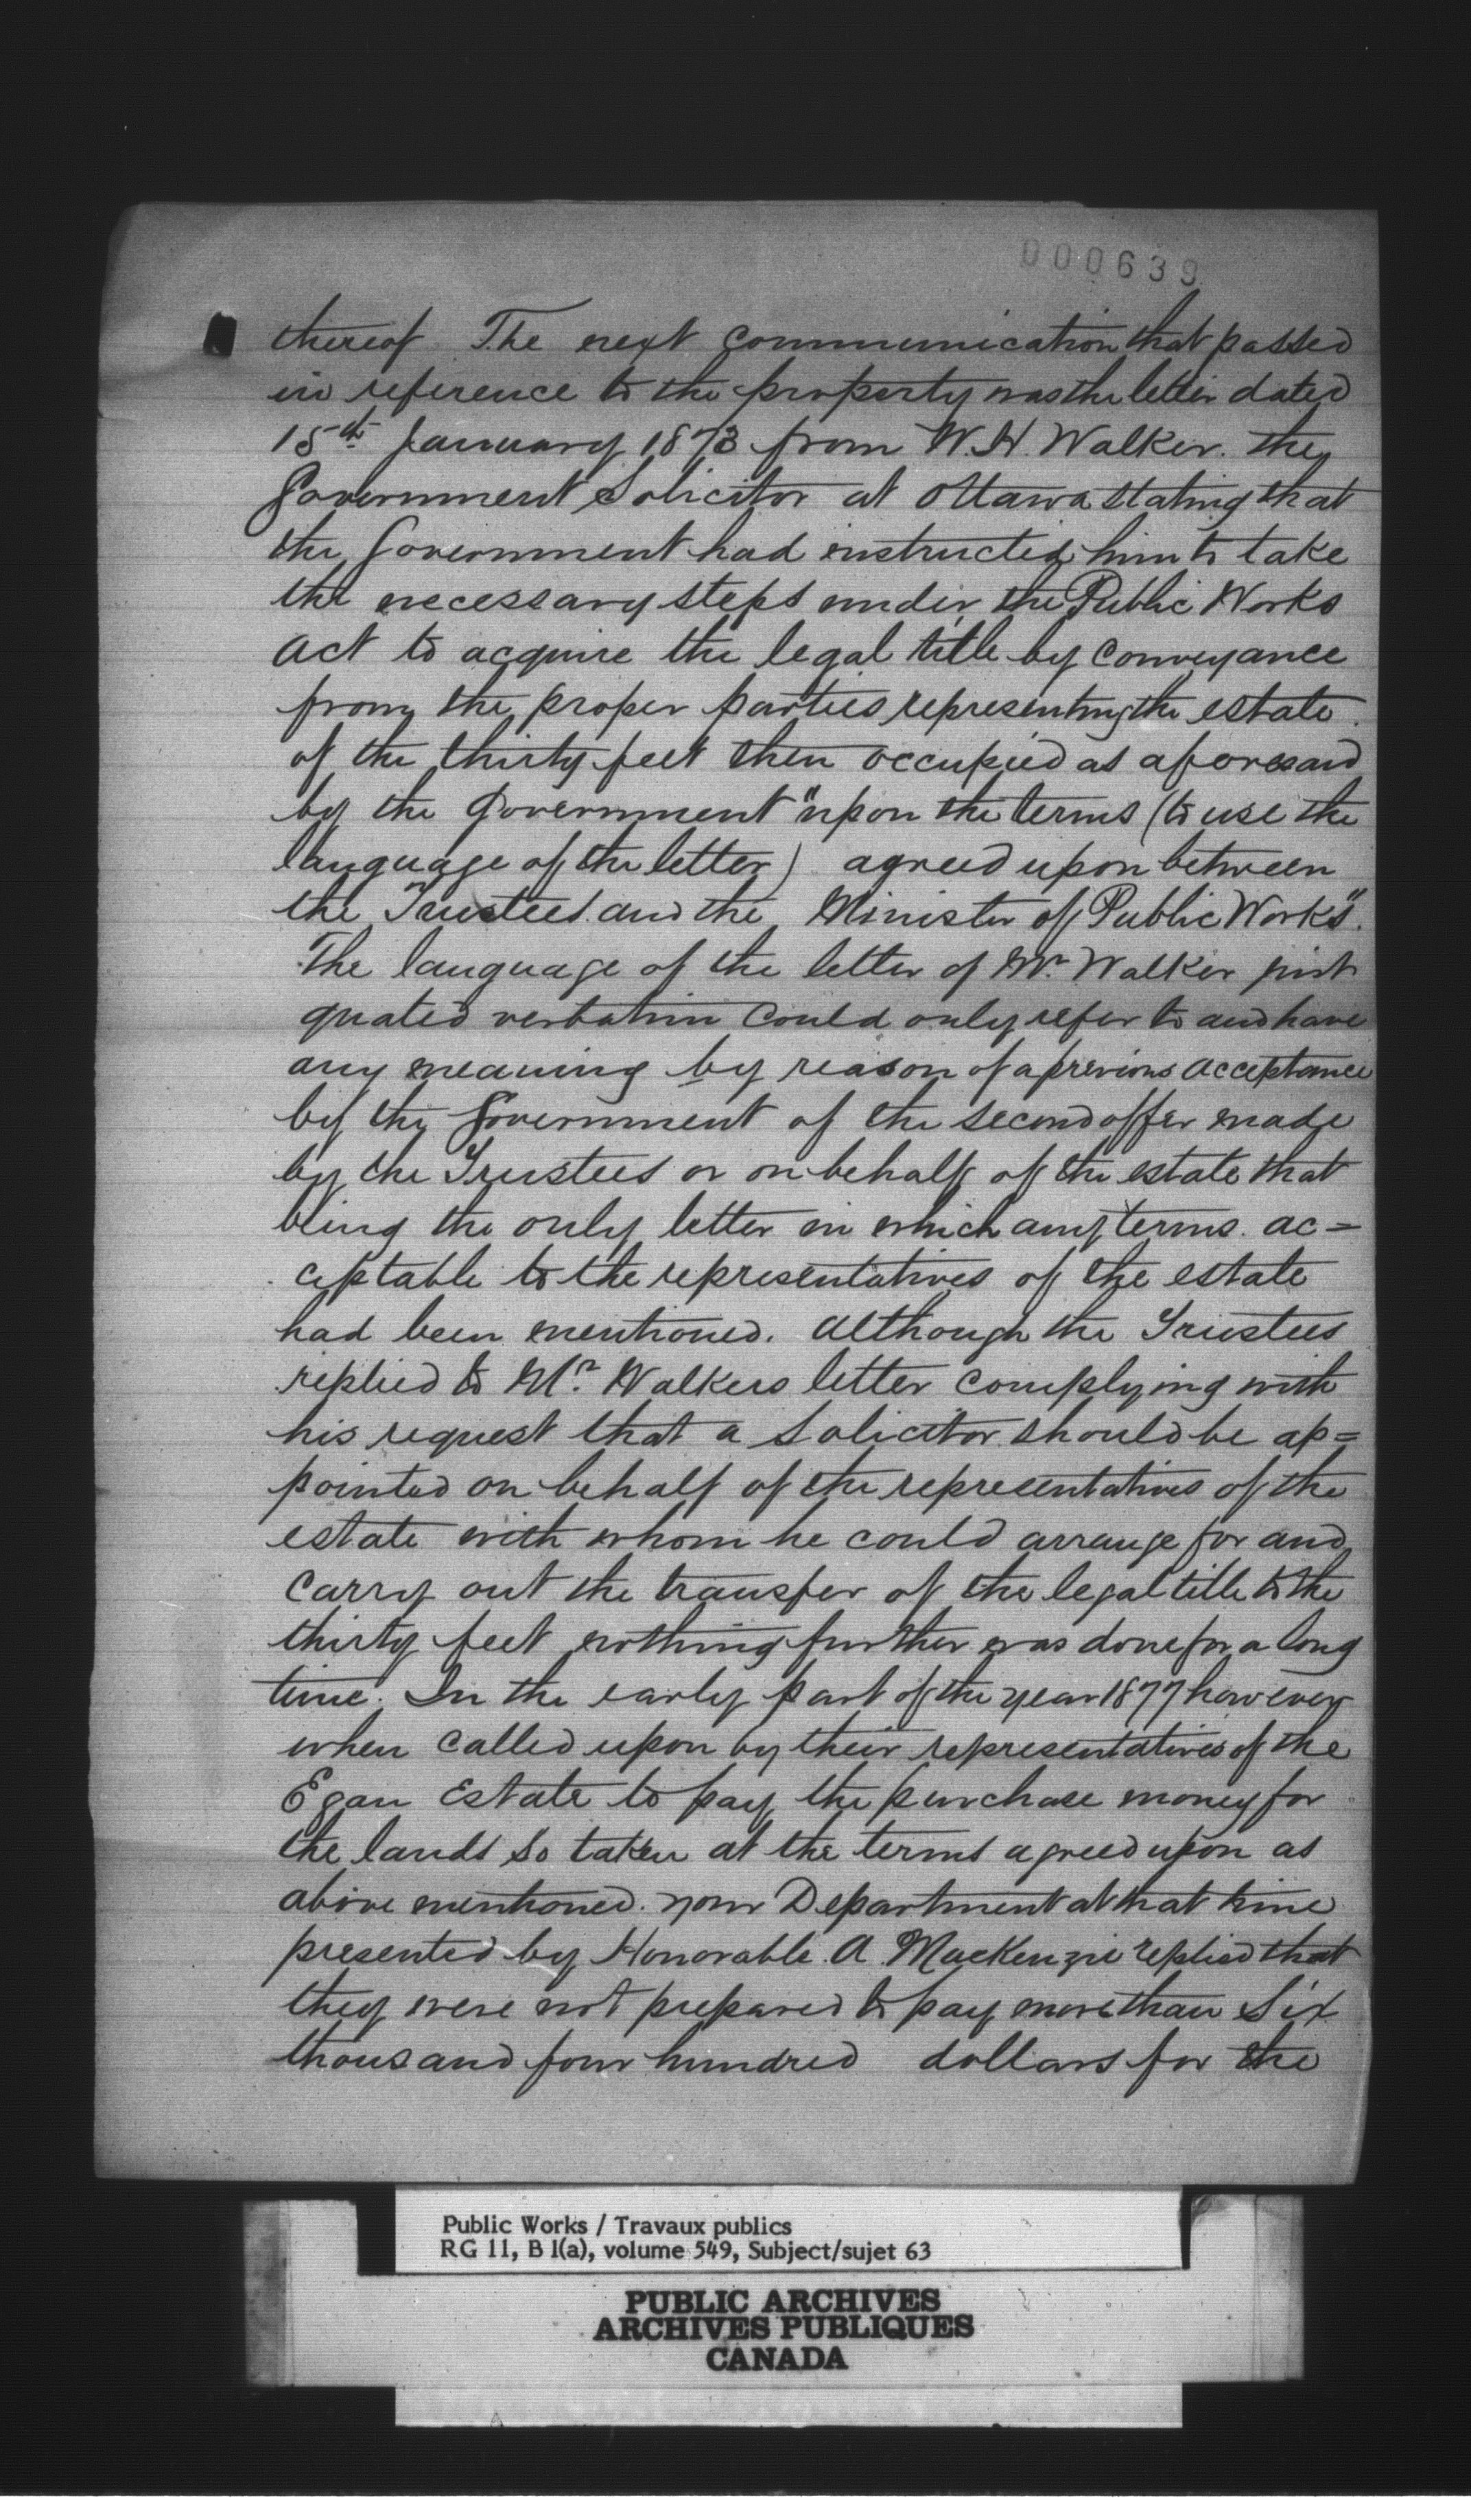 000639
thereof The next communication that passed
in reference to the property was the letter dated
15th January 1873 from W. H. Walker. the
Government Solicitor at Ottawa stating that
the Government had instructed him to take
the necessary steps under the Public Works
Act to acquire the legal title by conveyance
from the proper parties representing the estate
of the thirty feet then occupied as aforesaid
by the Government "upon the terms (to use the
language of the letter) agreed upon between
the Trustees and the Minister of Public Works".
The language of the letter of Mr. Walker just
quoted verbatim could only refer to and have
any meaning by reason of a previous acceptance
by the Government of the second offer made
by the Trustees or on behalf of the estate that
being the only letter in which any terms ac=
ceptable to the representatives of the estate
had been mentioned. Although the Trustees
replied to Mr. Walkers letter complying with
his request that a Solicitor should be ap=
pointed on behalf of the representatives of the
estate with whom he could arrange for and
carry out the transfer of the legal title to the
thirty feet nothing further was done for a long
time. In the early part of the year 1877 however
when called upon by their representatives of the
Egan Estate to pay the purchase money for
the lands so taken at the terms agreed upon as
above mentioned. your Department at that time
presented by Honorable A. MacKenzie replied that
they were not prepared to pay more than Six
thousand four hundred dollars for the
Public Works / Travaux publics
RG 11, B 1(a), volume 549, Subject/sujet 63
PUBLIC ARCHIVES
ARCHIVES PUBLIQUES
CANADA